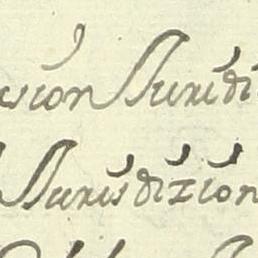 sion Juridi
Jurisdizion